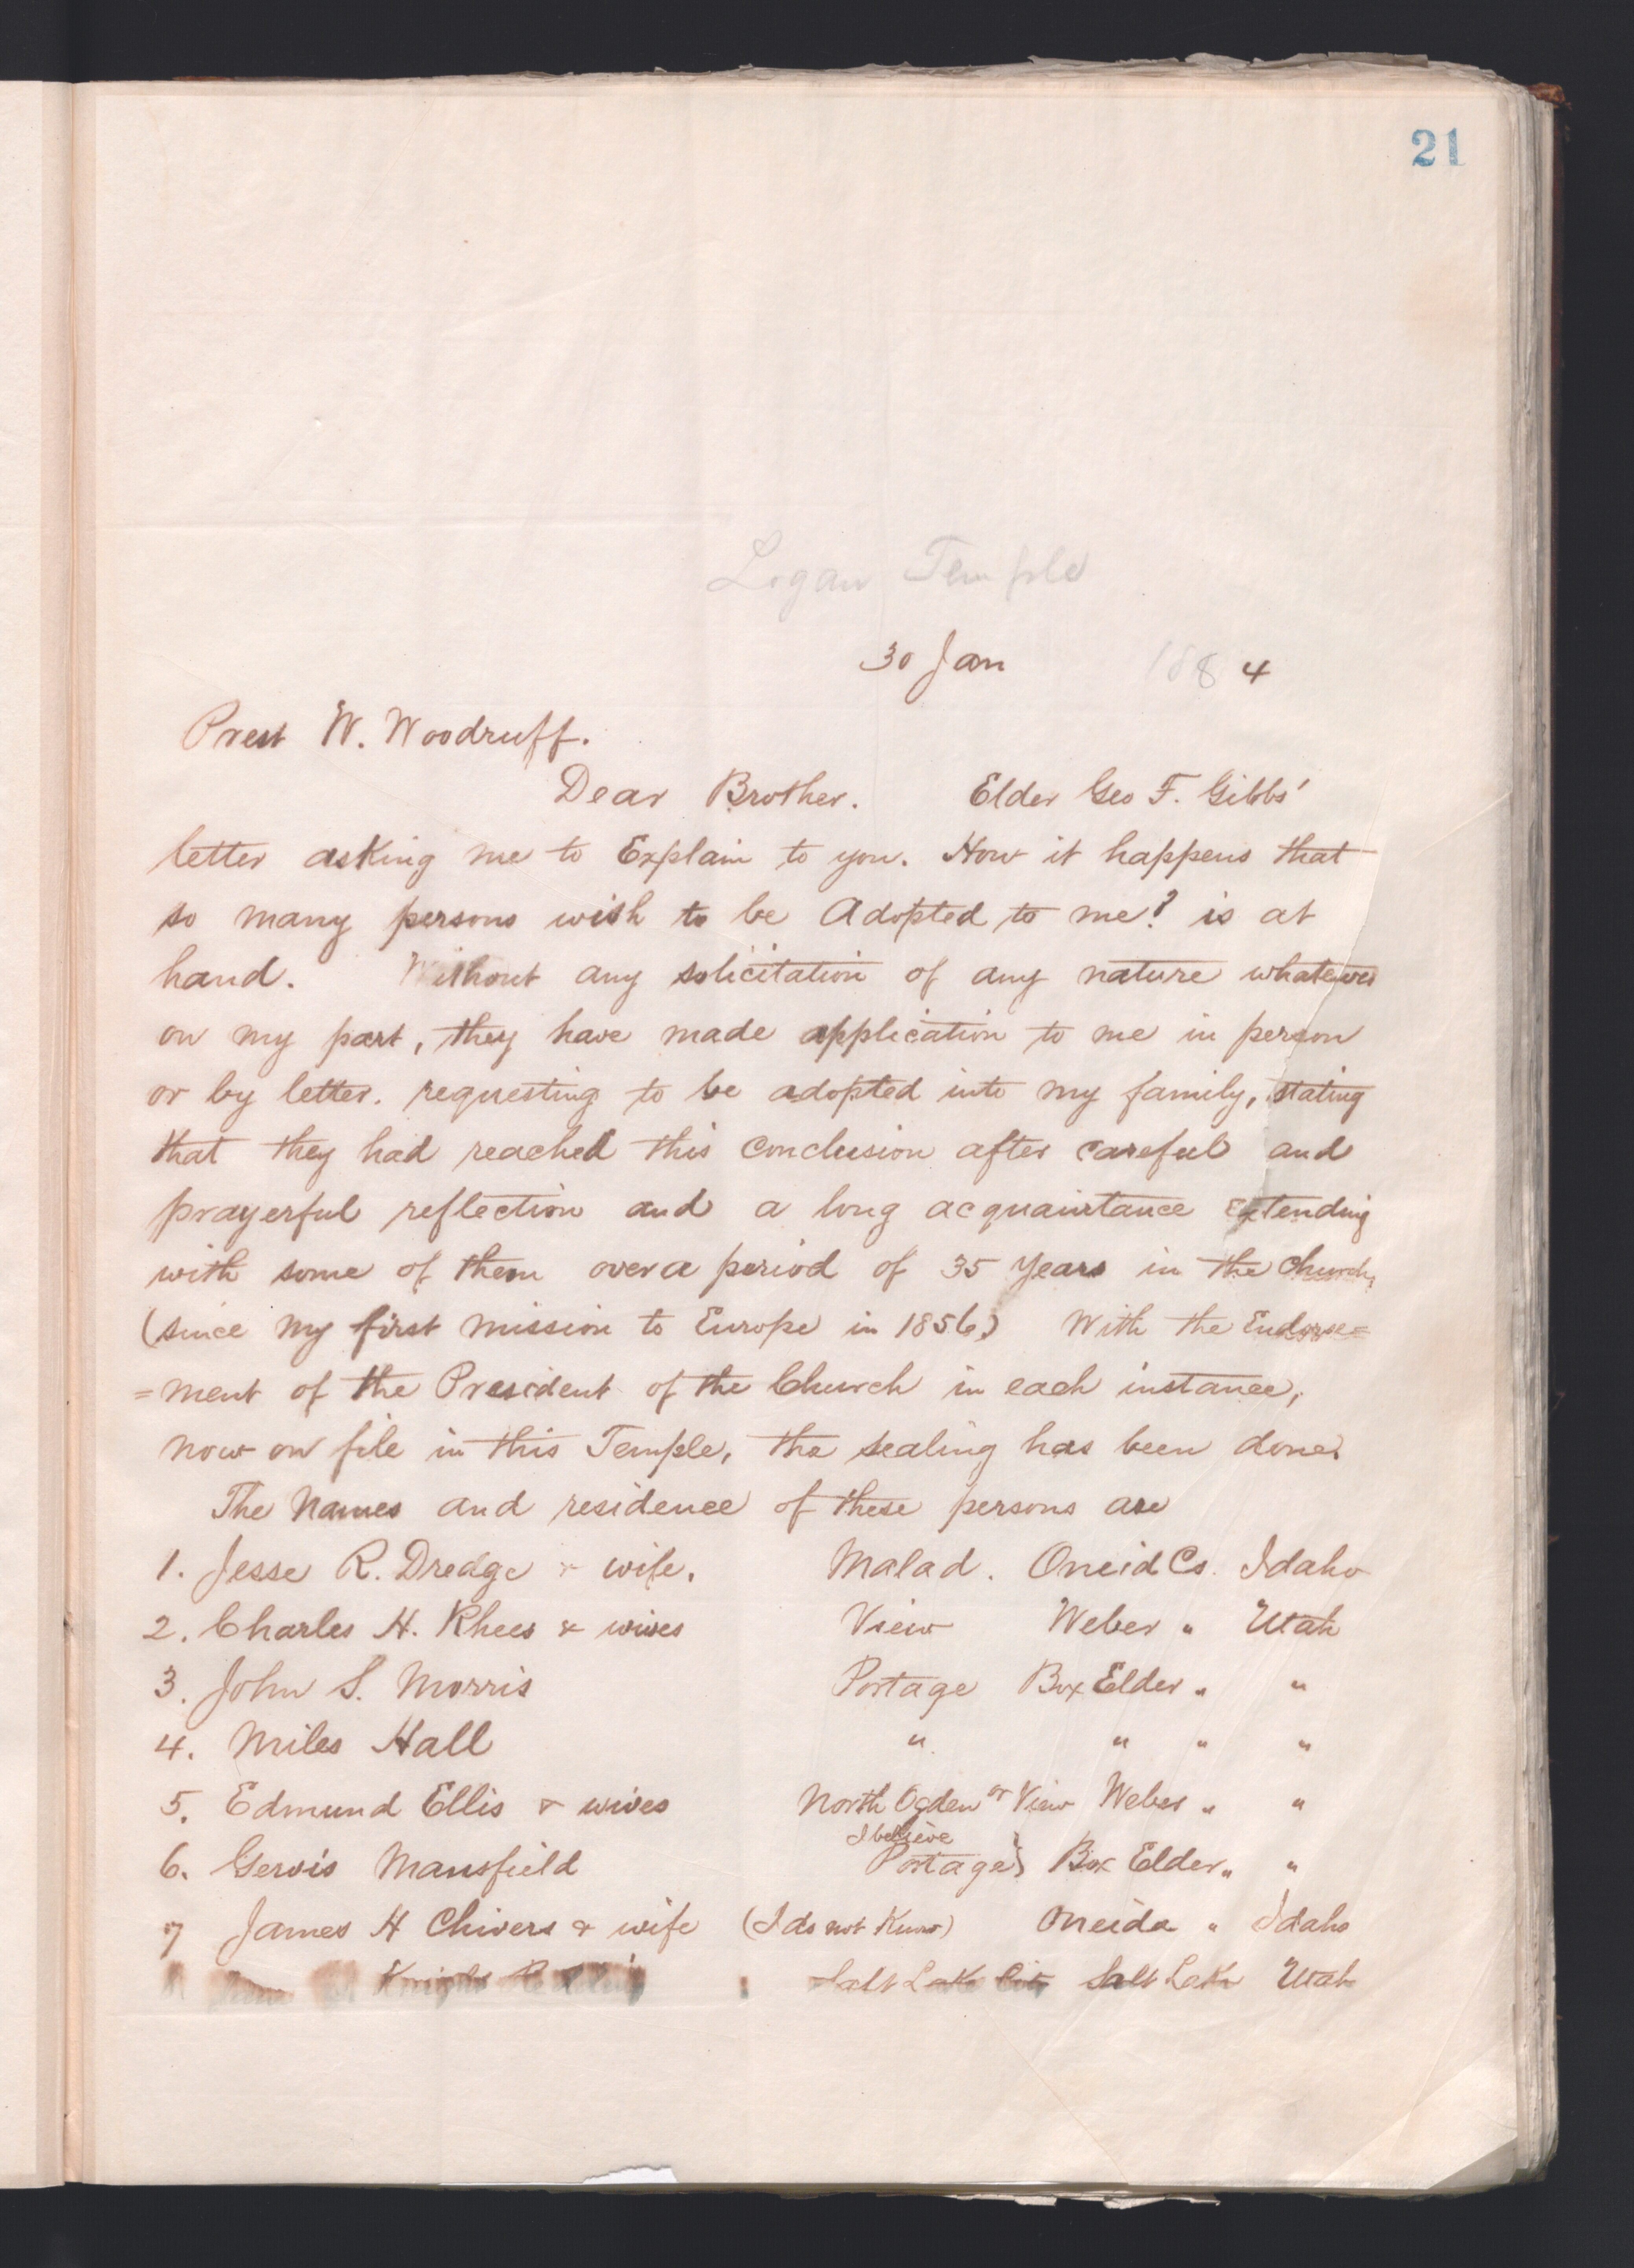 21
Logan Temple
30 Jan 1884
Prest W. Woodruff.
Dear Brother. Elder Geo F. Gibbs'
letter asking me to Explain to you. How it happens that
so many persons wish to be Adopted to me? is at
hand. Without any solicitation of any nature whatever
on my part, they have made application to me in person
or by letter. requesting to be adopted into my family, stating
that they had reached this conclusion after careful and
prayerful reflection and a long acquaintance extending
with some of them over a period of 35 years in the Church,
(since my first mission to Europe in 1856) With the Endorse=
=ment of the President of the Church in each instance,
now on file in this Temple, the sealing has been done.
The Names and residence of these persons are
1. Jesse R. Dredge & wife. Malad. Oneid Co. Idaho
2. Charles H. Rhees & wives View Weber " Utah
3. John S. Morris Portage Box Elder " "
4. Miles Hall " " " "
5. Edmund Ellis & wives North Ogden or View Weber " "
I believe
6. Gervis Mansfield Portage} Box Elder " "
7 James H Chivers & wife (I do not Know) Oneida " Idaho
Knight Salt Lake City Salt Lake Utah